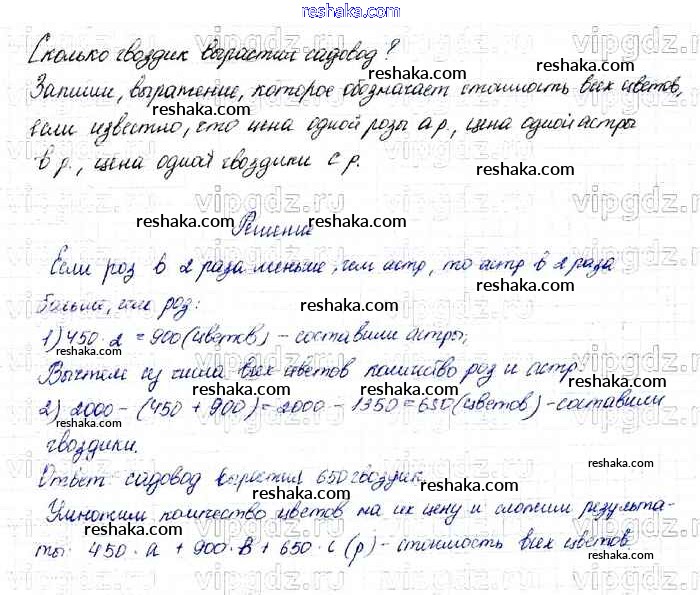 reshaka.com
Сколько гвоздик вырастил садовод?
reshaka.com
Запиши, выражение, которое обозначает стоимость всех цветов,
reshaka.com
если известно, что цена одной розы a р., цена одной астры
reshaka.com
в р., цена одной гвоздики с р.
reshaka.com reshaka.com
Решение
reshaka.com
Если роз в 2 раза меньше, чем астр, то астр в 2 раза
больше, чем роз:
reshaka.com reshaka.com
1) 450 · 2 = 900 (цветов) - составили астры;
reshaka.com
Вычтем из числа всех цветов количество роз и астр:
reshaka.com reshaka.com
2) 2000 - (450 + 900) = 2000 - 1350 = 650 (цветов) - составили
reshaka.com
гвоздики.
reshaka.com
Ответ: садовод вырастил 650 гвоздик.
reshaka.com
Умножим количество цветов на их цену и сложим результа-
reshaka.com
ты: 450 · a + 900 · в + 650 · с (р) - стоимость всех цветов.
reshaka.com reshaka.com